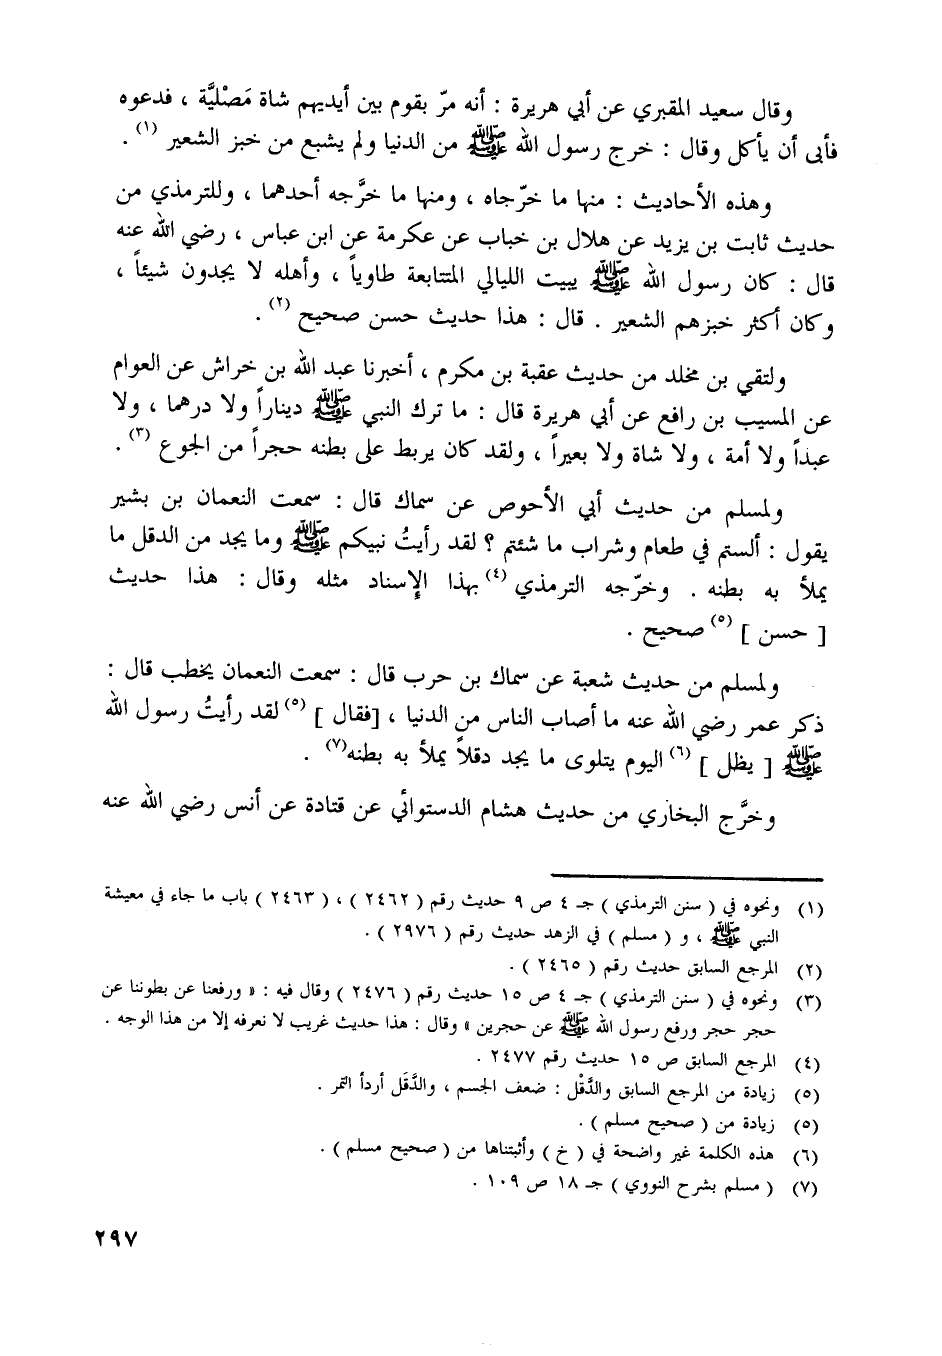 وقال سعيد المقبري عن أبي هريرة : أنه مرّ بقوم بين أيديهم شاة مَصْليَّة ، فدعوه
فأبى أن يأكل وقال : خرج رسول الله ﷺ من الدنيا ولم يشبع من خبز الشعير (١) .
وهذه الأحاديث : منها ما خرّجاه ، ومنها ما خرَّجه أحدهما ، وللترمذي من
حديث ثابت بن يزيد عن هلال بن خباب عن عكرمة عن ابن عباس ، رضي الله عنه
قال : كان رسول الله ﷺ يبيت الليالي المتتابعة طاوياً ، وأهله لا يجدون شيئاً ،
وكان أكثر خبزهم الشعير . قال : هذا حديث حسن صحيح (٢) .
ولتقي بن مخلد من حديث عقبة بن مكرم ، أخبرنا عبد الله بن خراش عن العوام
عن المسيب بن رافع عن أبي هريرة قال : ما ترك النبي ﷺ ديناراً ولا درهما ، ولا
عبداً ولا أمة ، ولا شاة ولا بعيراً ، ولقد كان يربط على بطنه حجراً من الجوع (٣) .
ولمسلم من حديث أبي الأحوص عن سماك قال : سمعت النعمان بن بشير
يقول : ألستم في طعام وشراب ما شئتم ؟ لقد رأيتُ نبيكم ﷺ وما يجد من الدقل ما
يملأ به بطنه . وخرّجه الترمذي (٤) بهذا الإسناد مثله وقال : هذا حديث
[ حسن ] (٥) صحيح .
ولمسلم من حديث شعبة عن سماك بن حرب قال : سمعت النعمان يخطب قال :
ذكر عمر رضي الله عنه ما أصاب الناس من الدنيا ، [فقال ] (٥) لقد رأيتُ رسول الله
ﷺ [ يظل ] (٦) اليوم يتلوى ما يجد دقلاً يملأ به بطنه (٧) .
وخرَّج البخاري من حديث هشام الدستوائي عن قتادة عن أنس رضي الله عنه
(١) ونحوه في ( سنن الترمذي ) جـ ٤ ص ٩ حديث رقم ( ٢٤٦٢ ) ، ( ٢٤٦٣ ) باب ما جاء في معيشة
النبي ﷺ ، و ( مسلم ) في الزهد حديث رقم ( ٢٩٧٦ ) .
(٢) المرجع السابق حديث رقم ( ٢٤٦٥ ) .
(٣) ونحوه في ( سنن الترمذي ) جـ ٤ ص ١٥ حديث رقم ( ٢٤٧٦ ) وقال فيه : « ورفعنا عن بطوننا عن
حجر حجر ورفع رسول الله ﷺ عن حجرين » وقال : هذا حديث غريب لا نعرفه إلا من هذا الوجه .
(٤) المرجع السابق ص ١٥ حديث رقم ٢٤٧٧ .
(٥) زيادة من المرجع السابق والدَّقْل : ضعف الجسم ، والدَّقَل أردأ التمر .
(٥) زيادة من ( صحيح مسلم ) .
(٦) هذه الكلمة غير واضحة في ( خ ) وأثبتناها من ( صحيح مسلم ) .
(٧) ( مسلم بشرح النووي ) جـ ١٨ ص ١٠٩ .
٢٩٧